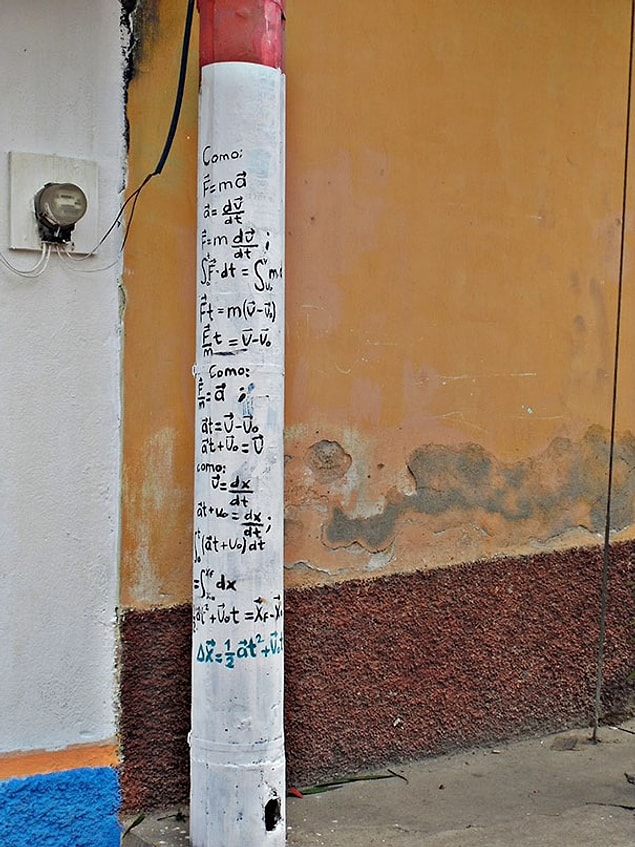 Como:
F⃗=ma⃗
a⃗=dv⃗/dt
F⃗=m dv⃗/dt ;
∫₀ᵗF⃗·dt = ∫ᵥ₀ᵛ m
F⃗t=m(v⃗-v⃗₀)
F⃗/m t=v⃗-v⃗₀
Como:
F⃗/m=a⃗ ;
a⃗t=v⃗-v⃗₀
a⃗t+v⃗₀=v⃗
como:
v⃗=dx/dt
a⃗t+v₀=dx/dt;
∫₀ᵗ(a⃗t+v₀)dt
=∫dx
½a⃗t²+v⃗₀t=x⃗f-x⃗
Δx⃗=½a⃗t²+v⃗₀t